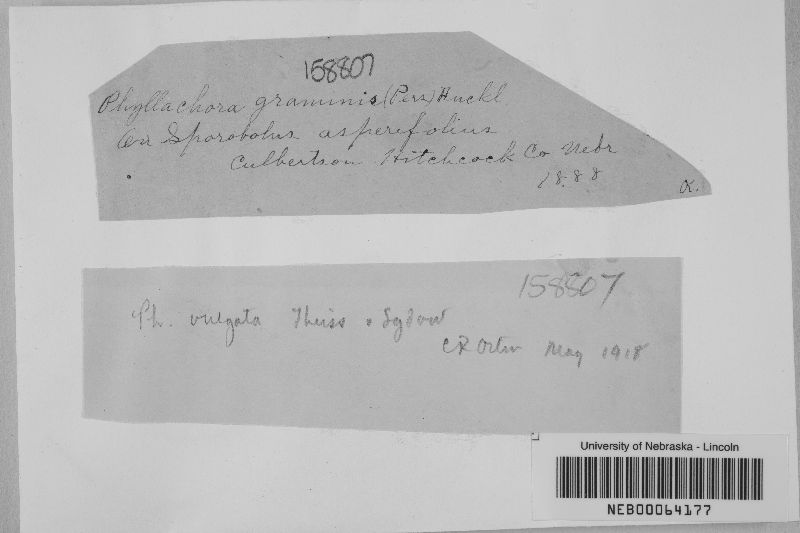 158807
Phyllachora graminis (Pers) Fuckl
On Sporobolus asperifolius
Culbertson Hitchcock Co Nebr
1888
158807
Ph. vulgata Theiss & Sydow
C R Orton May 1918
University of Nebraska - Lincoln
NEB00064177